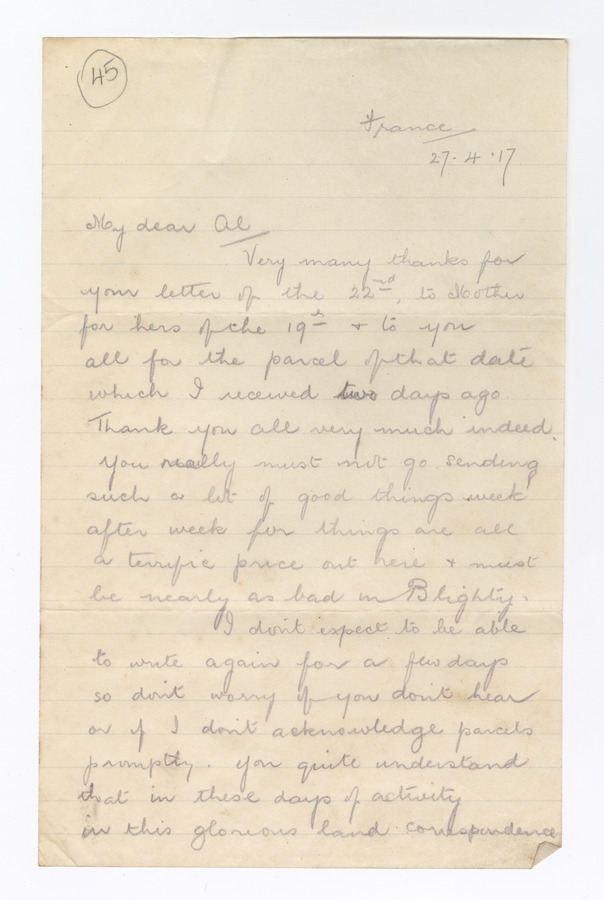 45
France
27.4.17
My dear Al
Very many thanks for
your letter of the 22nd, to Mother
for hers of the 19th + to you
all for the parcel of that date
which I received two days ago.
Thank you all very much indeed.
You really must not go sending
such a lot of good things week
after week for things are all
a terrific price out here + must
be nearly as bad in Blighty.
I don't expect to be able
to write again for a few days
so don't worry if you don't hear
or if I don't acknowledge parcels
promptly. You quite understand
that in these days of activity
in this glorious land correspondence